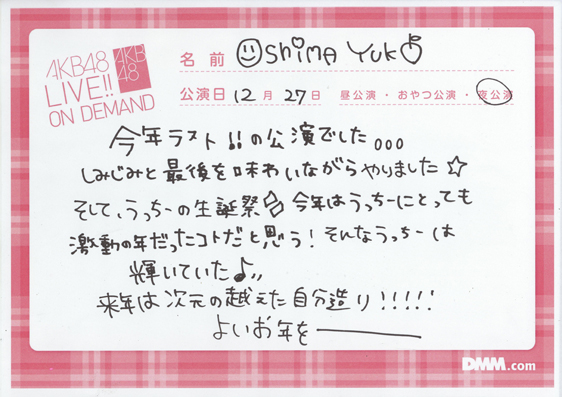 AKB48
LIVE!!
ON DEMAND
AKB
48
名前 Oshima Yuko
公演日 12月 27日 昼公演・おやつ公演・夜公演
今年ラスト!!の公演でした。。。
しみじみと最後を味わいながらやりました☆
そして、うっちーの生誕祭 今年はうっちーにとっても
激動の年だったコトだと思う!そんなうっちーは
輝いていた♪,,
来年は次元の越えた自分造り!!!!!
よいお年を———
DMM.com